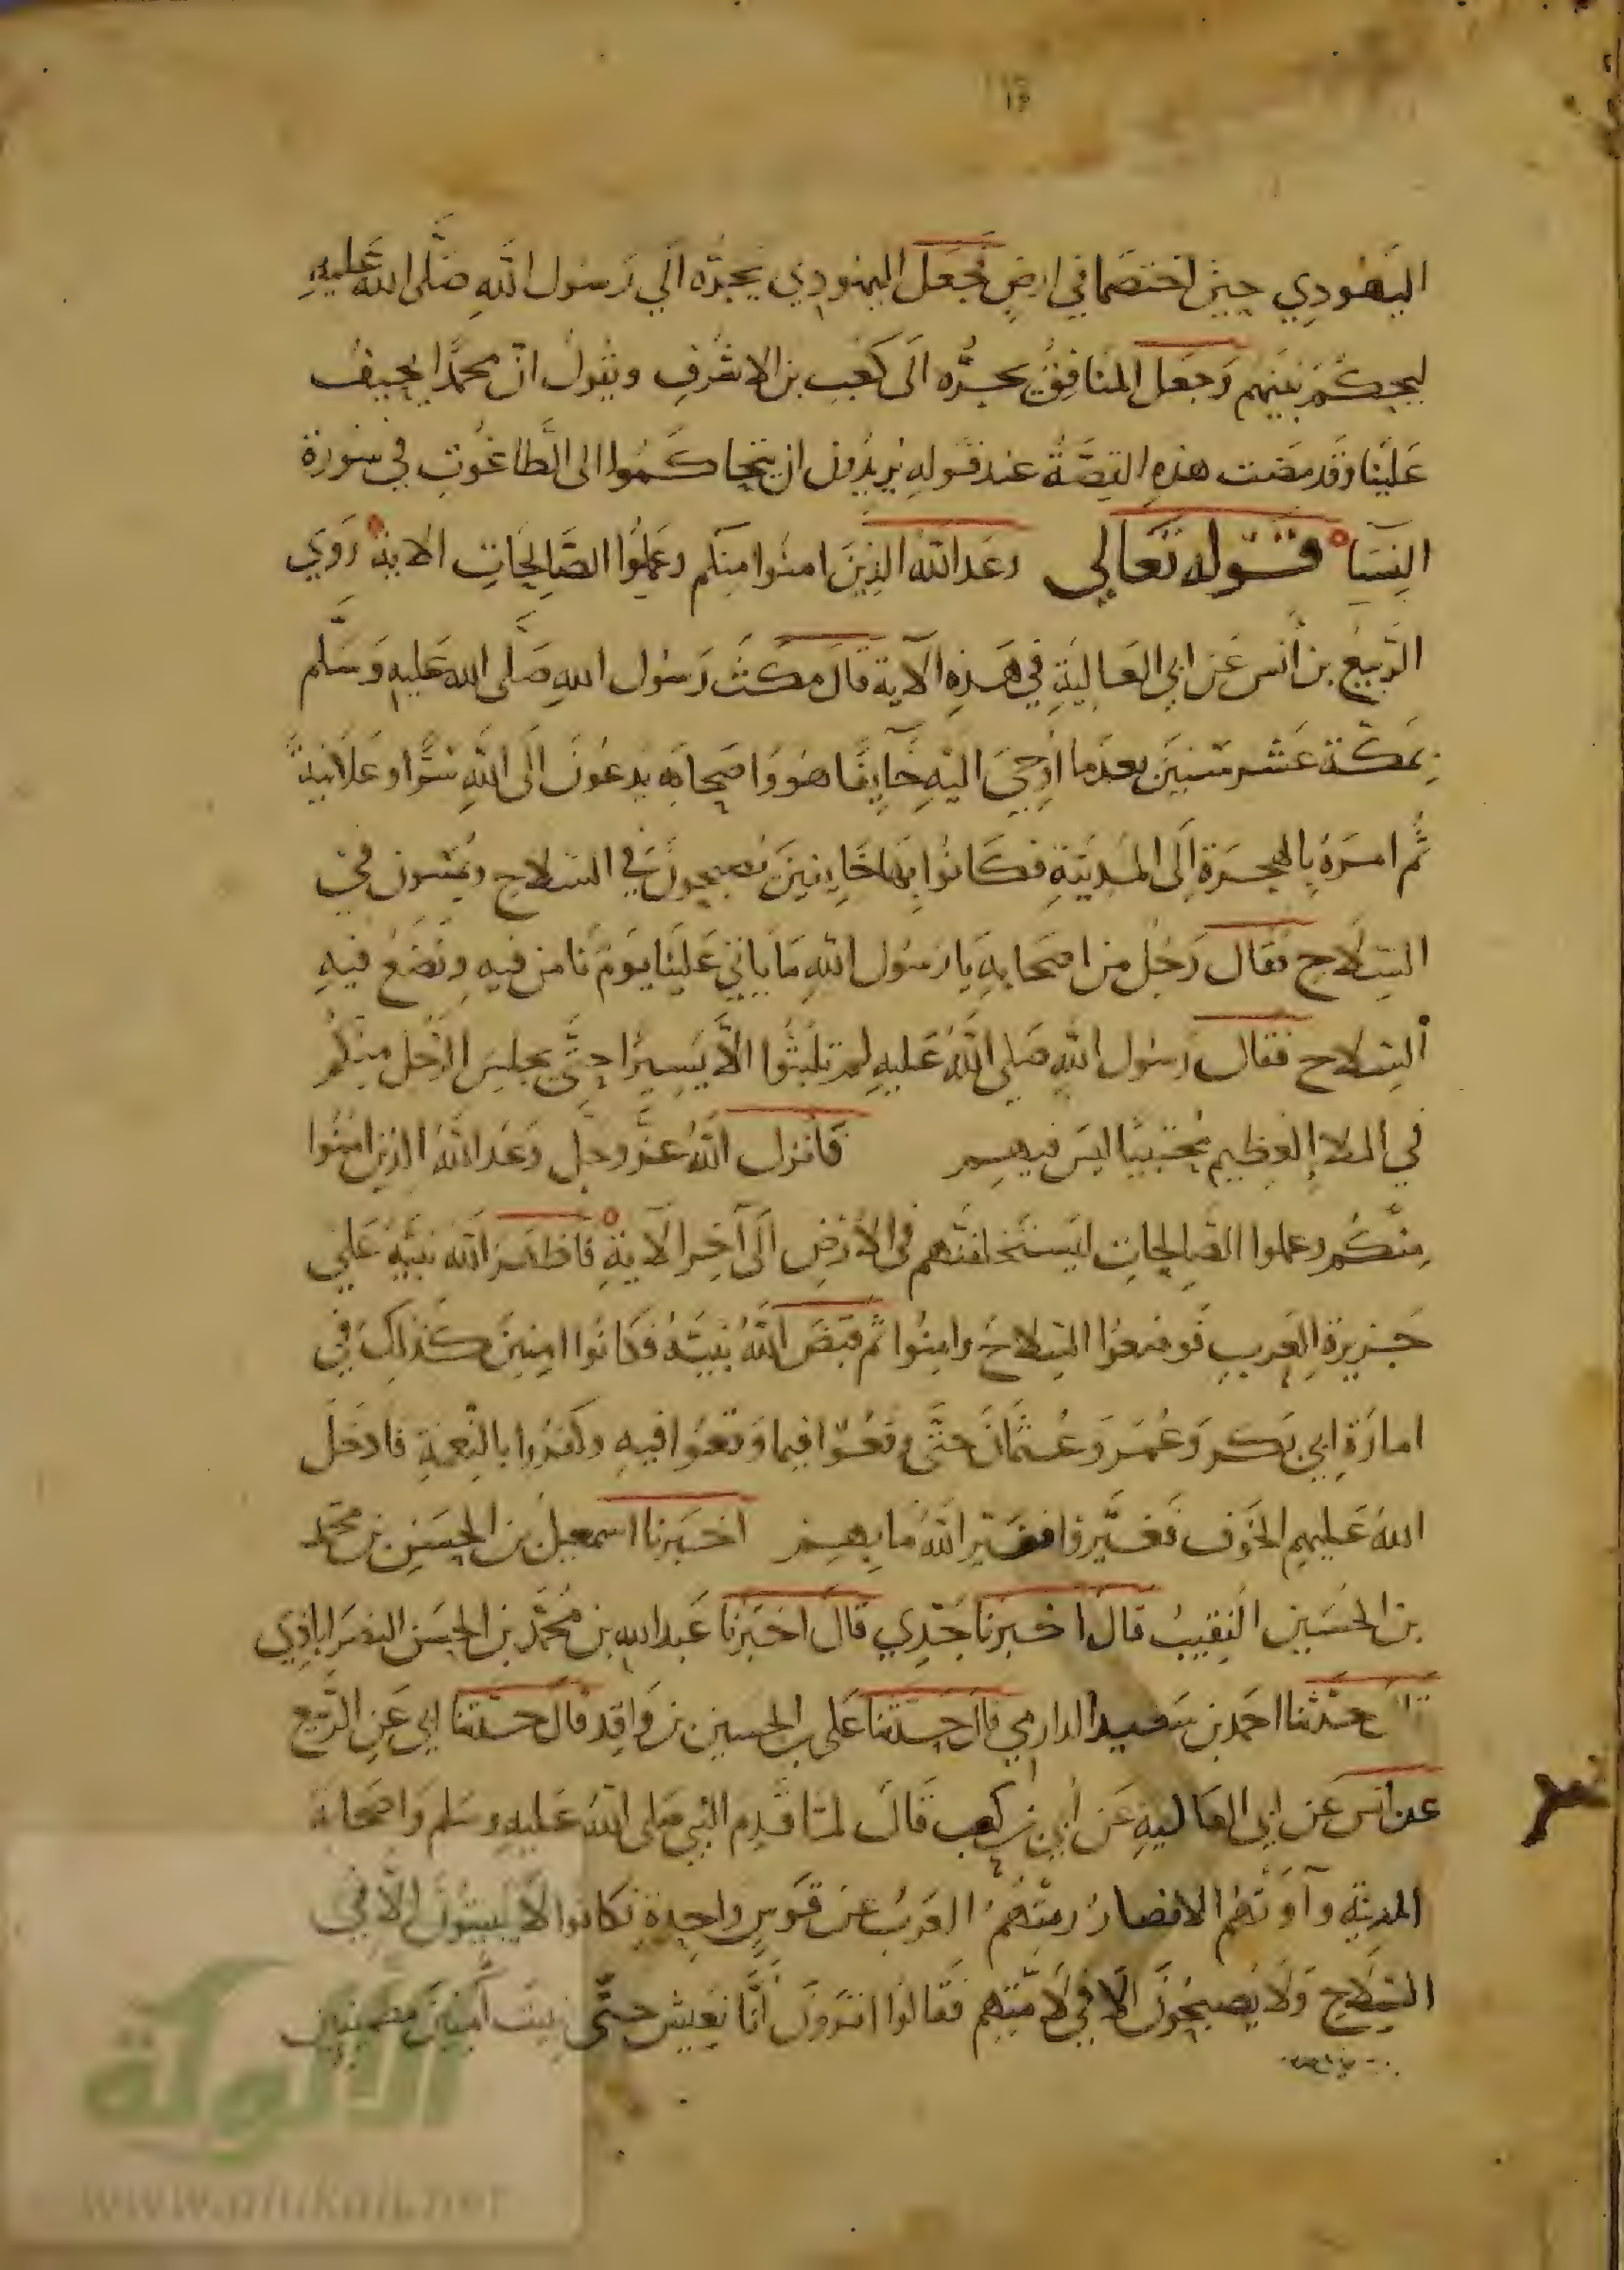 اليهودي حين اختصما في ارضٍ فجعل اليهودي يجرّه الي رسول اللهِ صلّى الله عليهِ
ليحكم بينهم وجعل المنافق يجرّه الى كعب بن الاشرف ويقول انّ محمّدًا يحيف
علينا وقد مضت هذه القصّة عند قوله يريدون ان يتحاكموا الى الطّاغوتِ في سورة
النسآ قوله تعالي وعد الله الذين امنوا منكم وعملوا الصّالحاتِ الاية رَوي
الرّبيع بن أنس عن ابي العاليةِ في هذهِ الآية قال مكث رسول اللهِ صلّى الله عليهِ وسلّم
بمكّة عشر سنين بعد ما أوحيَ اليهِ خآيفًا هو وأصحابه يدعون الى اللهِ سرًّا وعلانيةً
ثُم امره بالهجرة الى المدينةِ فكانوا بها خايفين يصبحون في السّلاح ويمسون في
السّلاح فقال رجل من اصحابهِ يا رسول اللهِ ما ياتي علينا يوم نامن فيهِ ونضع فيهِ
السّلاح فقال رسول اللهِ صلي اللهُ عليهِ لم تلبثوا الّا يسيرًا حتّى يجلس الرّجل منكم
في الملاء العظيم محتبيًا ليس فيهم فأنزل اللهُ عزّ وجلّ وعد اللهُ الذين امنوا
منكم وعملوا الصّالحاتِ ليستخلفنّهم في الأرضِ الى آخر الآية فاظهر الله نبيّه علي
جزيرة العربِ فوضعوا السّلاح وامنوا ثم قبض اللهُ نبيّه فكانوا امنين كذلك في
امارة ابي بكر وعمر وعثمان حتّى وقعوا فيما وقعوا فيهِ وكفروا بالنّعمة فادخل
اللهُ عليهم الخوف فغيّروا فغيّر اللهُ ما بهم اخبرنا اسمعيل بن الحسن بن محمّد
بن الحسين النقيب قال اخبرنا جدّي قال اخبرنا عبد الله بن محمّد بن الحسن النصراباذي
حدّثنا احمد بن سعيد الدارمي قال حدّثنا على بن الحسين بن واقد قال حدّثنا ابي عن الرّبيع
عن انس عن ابي العاليةِ عن أبيّ بن كعب قال لمّا قدم النبي صلى اللهُ عليهِ وسلم واصحابه
المدينة وآوتهم الانصار رمتهم العرب عن قوسٍ واحدةٍ فكانوا لا يبيتون الّا في
السّلاح ولا يصبحون الّا في لامتهم فقالوا اترون أنّا نعيش حتّى نبيت آمنين مطمئنين
الألوكة
www.alukah.net